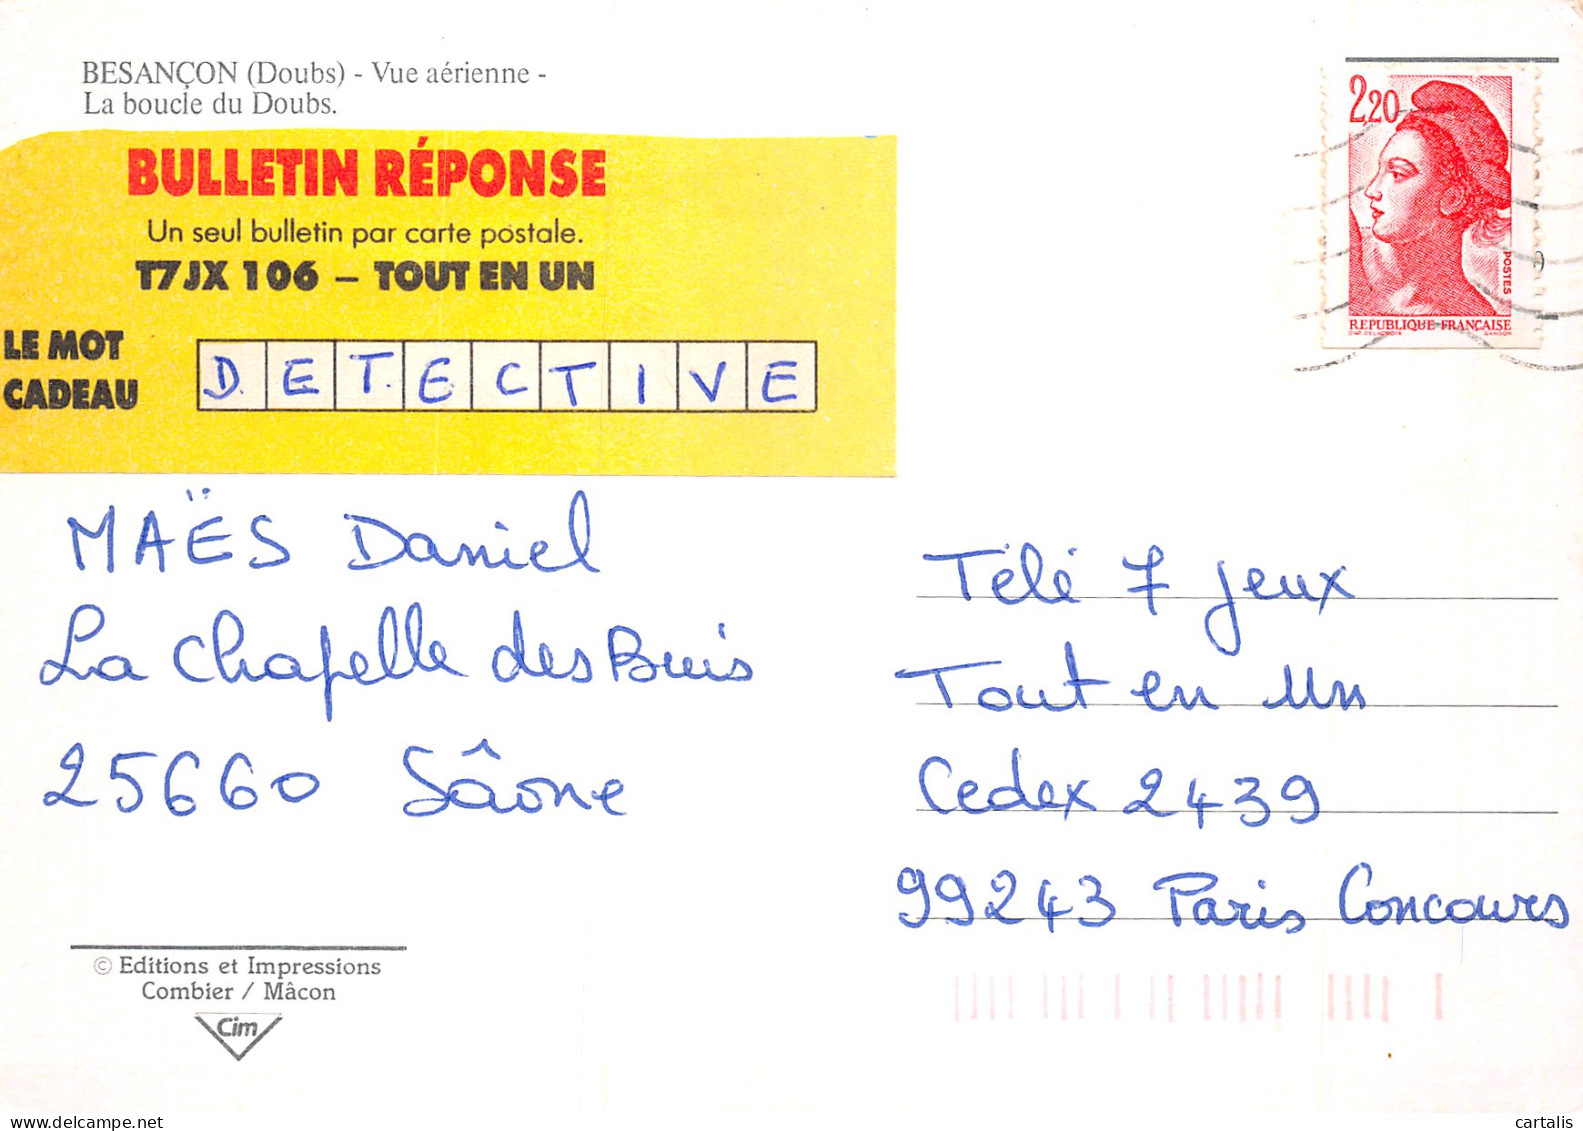 BESANÇON (Doubs) - Vue aérienne -
La boucle du Doubs.
BULLETIN RÉPONSE
Un seul bulletin par carte postale.
T7JX 106 – TOUT EN UN
LE MOT
CADEAU
D. E T. E C T I V E
MAËS Daniel
La Chapelle des Buis
25660 Sâone
© Editions et Impressions
Combier / Mâcon
Cim
2,20
POSTES
REPUBLIQUE FRANÇAISE
D'AP. DELACROIX GANDON
Télé 7 jeux
Tout en Un
Cedex 2439
99243 Paris Concours
delcampe.net
cartalis